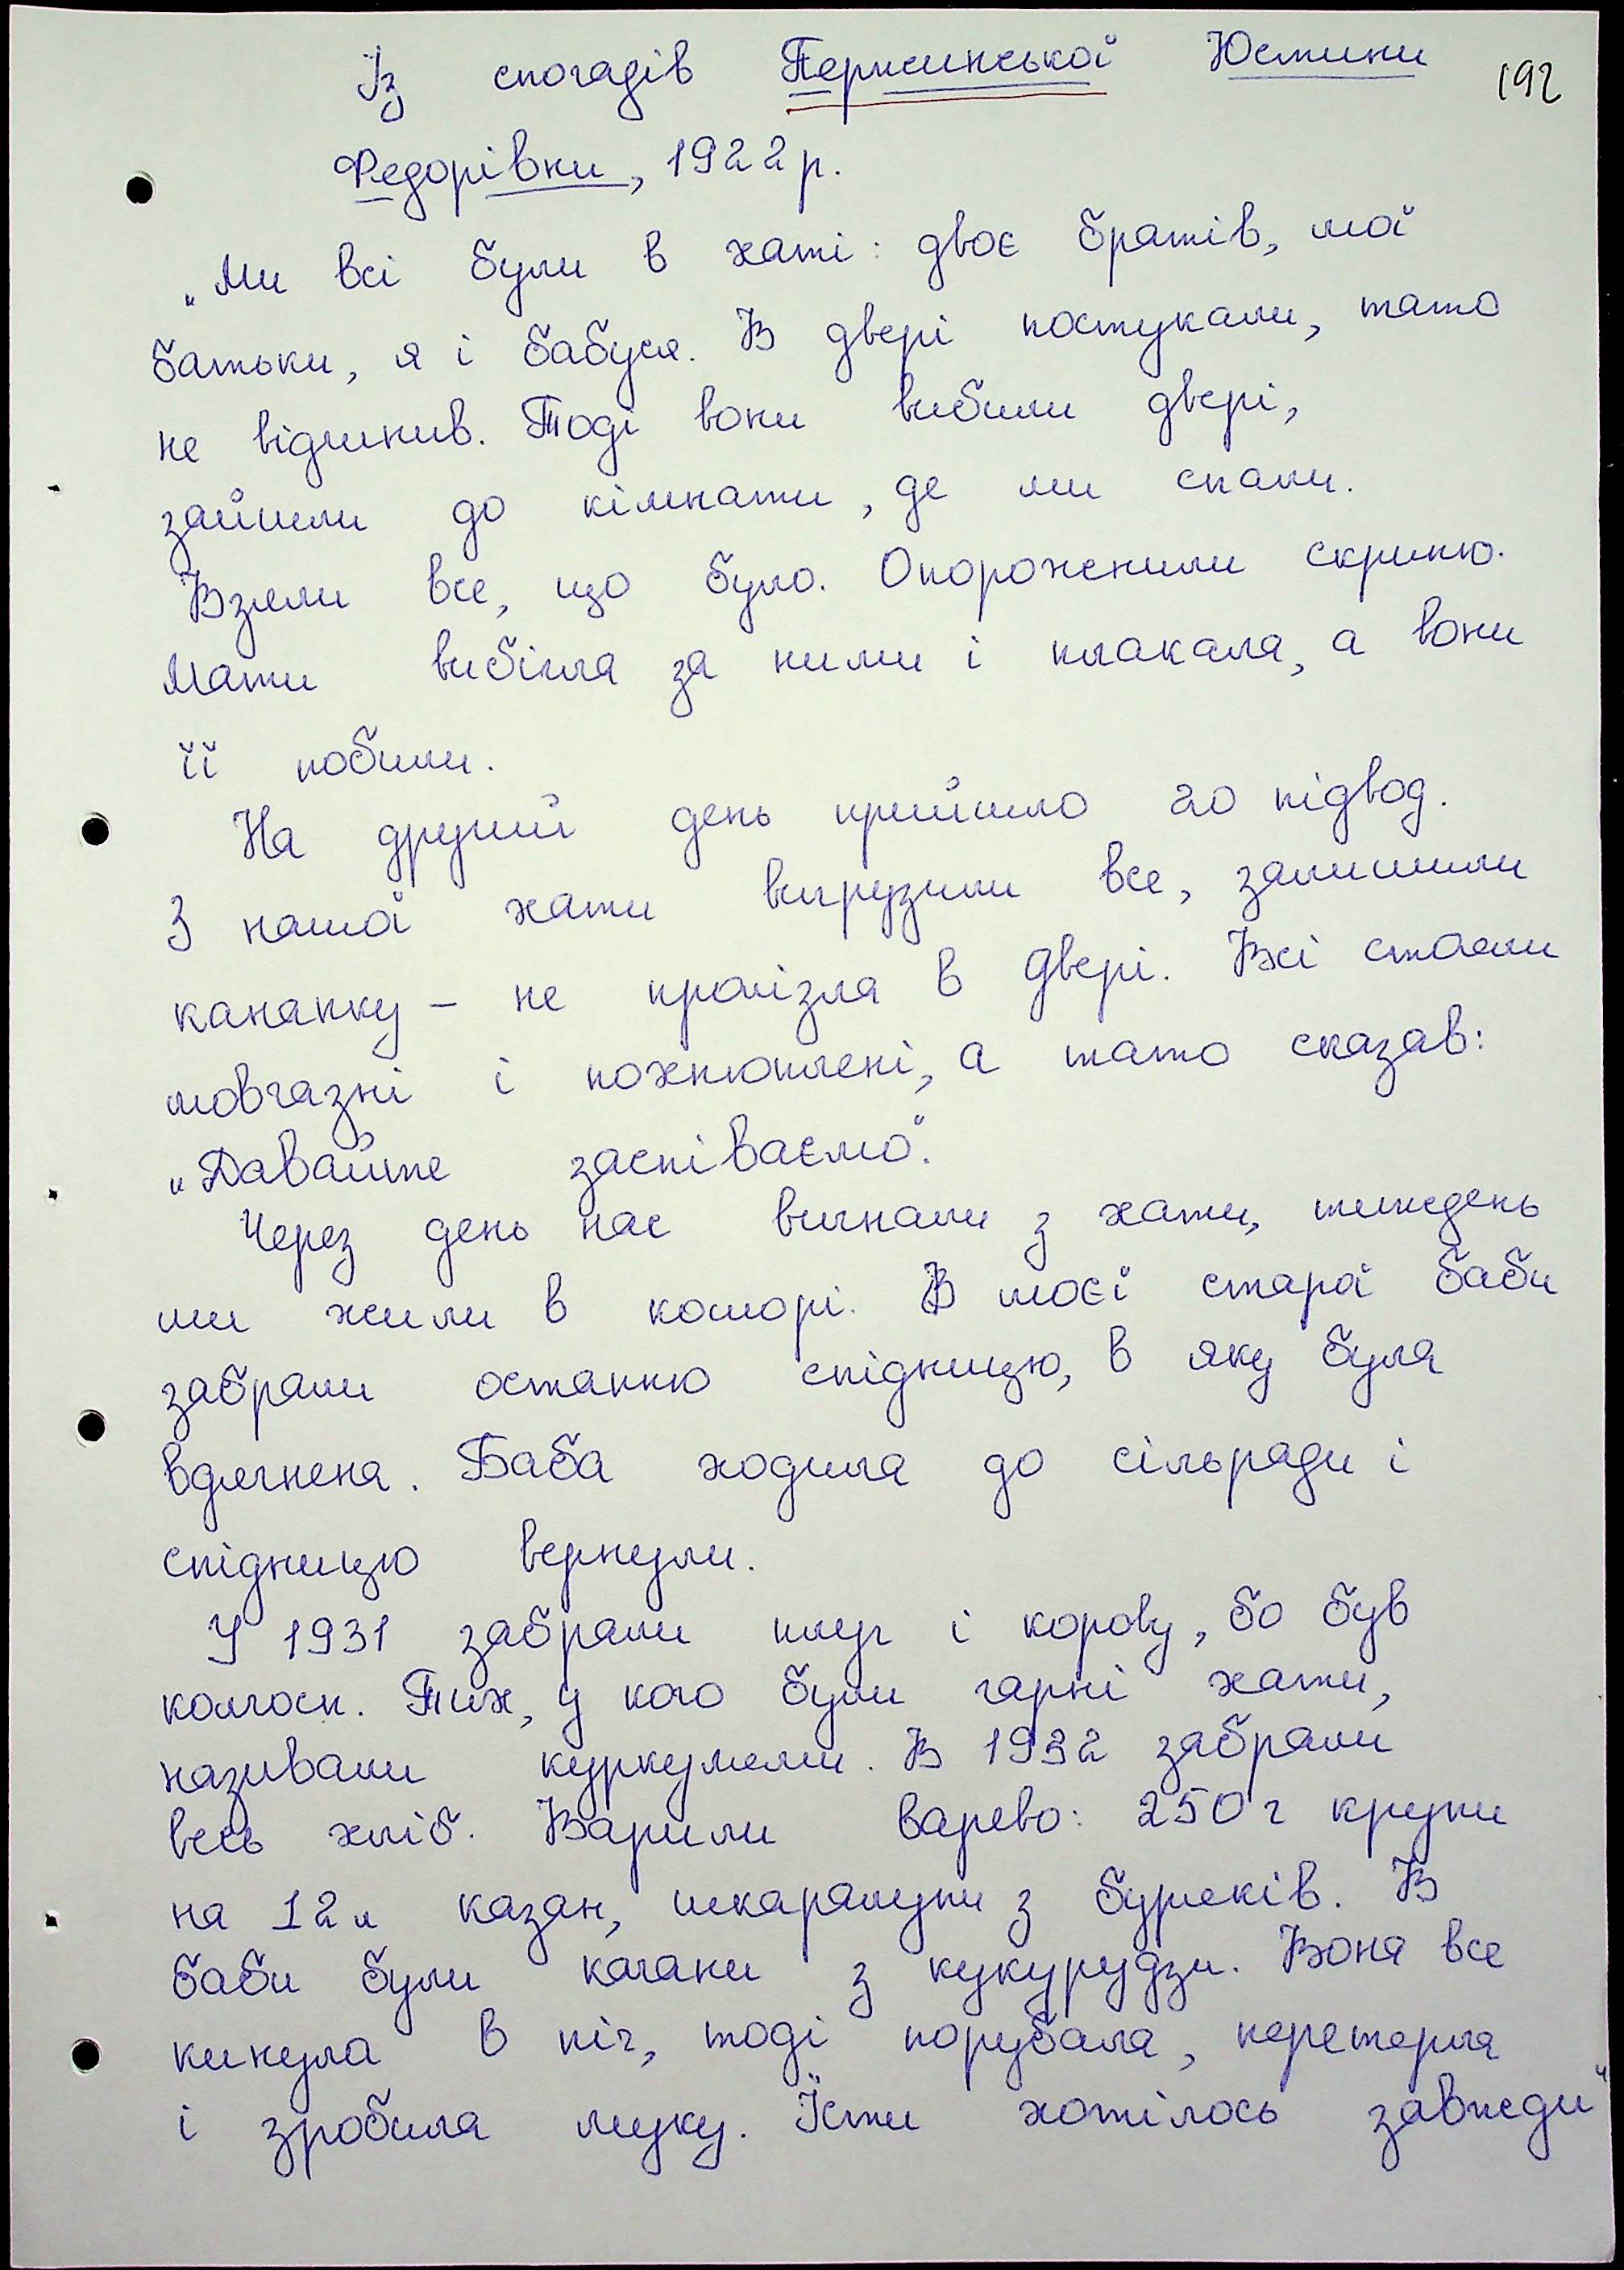 Із спогадів Пержинської Юстини 192
Федорівни, 1922 р.
„Ми всі були в хаті: двоє братів, мої
батьки, я і бабуся. В двері постукали, тато
не відчинив. Тоді вони вибили двері,
зайшли до кімнати, де ми спали.
Взяли все, що було. Опорожнили скриню.
Мати вибігла за ними і плакала, а вони
її побили.
На другий день прийшло 20 підвод.
З нашої хати вигрузили все, залишили
канапку – не пролізла в двері. Всі стояли
мовчазні і похнюплені, а тато сказав:
„Давайте заспіваємо“.
Через день нас вигнали з хати, тиждень
ми жили в коморі. В моєї старої баби
забрали останню спідницю, в яку була
вдягнена. Баба ходила до сільради і
спідницю вернули.
У 1931 забрали плуг і корову, бо був
колгосп. Тих, у кого були гарні хати,
називали куркулями. В 1932 забрали
весь хліб. Варили варево: 250 г крупи
на 12 л казан, шкаралупи з буряків. В
баби були качани з кукурудзи. Вона все
кинула в піч, тоді порубала, перетерла
і зробила муку. Їсти хотілось завжди“